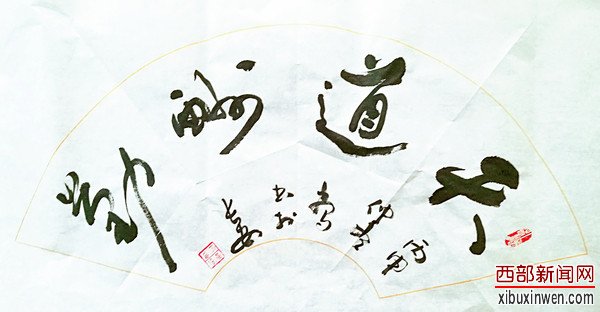 天道酬勤
丙申
仲春
书於
长安
西部新闻网
xibuxinwen.com